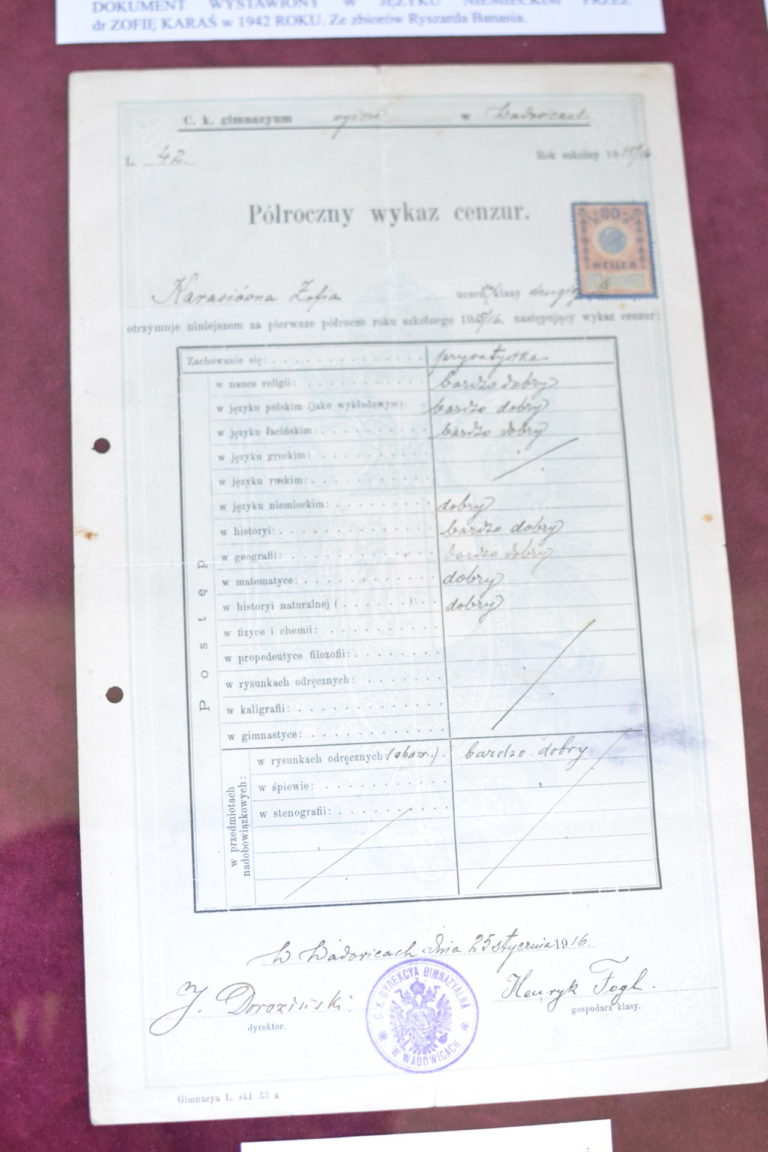 DOKUMENT WYSTAWIONY W JĘZYKU NIEMIECKIM PRZEZ
dr ZOFIĘ KARAŚ w 1942 ROKU. Ze zbiorów Ryszarda Banasia.
C. k. gimnazyum wyższe w Wadowicach
L. 42. Rok szkolny 1915/16
Półroczny wykaz cenzur.
80
HELLER
Karasiówna Zofia klasy drugiej
otrzymuje niniejszem za pierwsze półrocze roku szkolnego 1915/16. następujący wykaz cenzur:
Zachowanie się: prywatystka
Postęp
w nauce religii: bardzo dobry
w języku polskim (jako wykładowym): bardzo dobry
w języku łacińskim: bardzo dobry
w języku greckim:
w języku ruskim:
w języku niemieckim: dobry
w historyi: bardzo dobry
w geografii: bardzo dobry
w matematyce: dobry
w historyi naturalnej ( ): dobry
w fizyce i chemii:
w propedeutyce filozofii:
w rysunkach odręcznych:
w kaligrafii:
w gimnastyce:
w przedmiotach nadobowiązkowych:
w rysunkach odręcznych (obow.) bardzo dobry
w śpiewie:
w stenografii:
W Wadowicach dnia 25 stycznia 1916.
J. Doroziński. Henryk Fogl.
dyrektor. gospodarz klasy.
C. K. DYREKCYA GIMNAZYALNA
W WADOWICACH
Gimnazya L. skł. 53 a